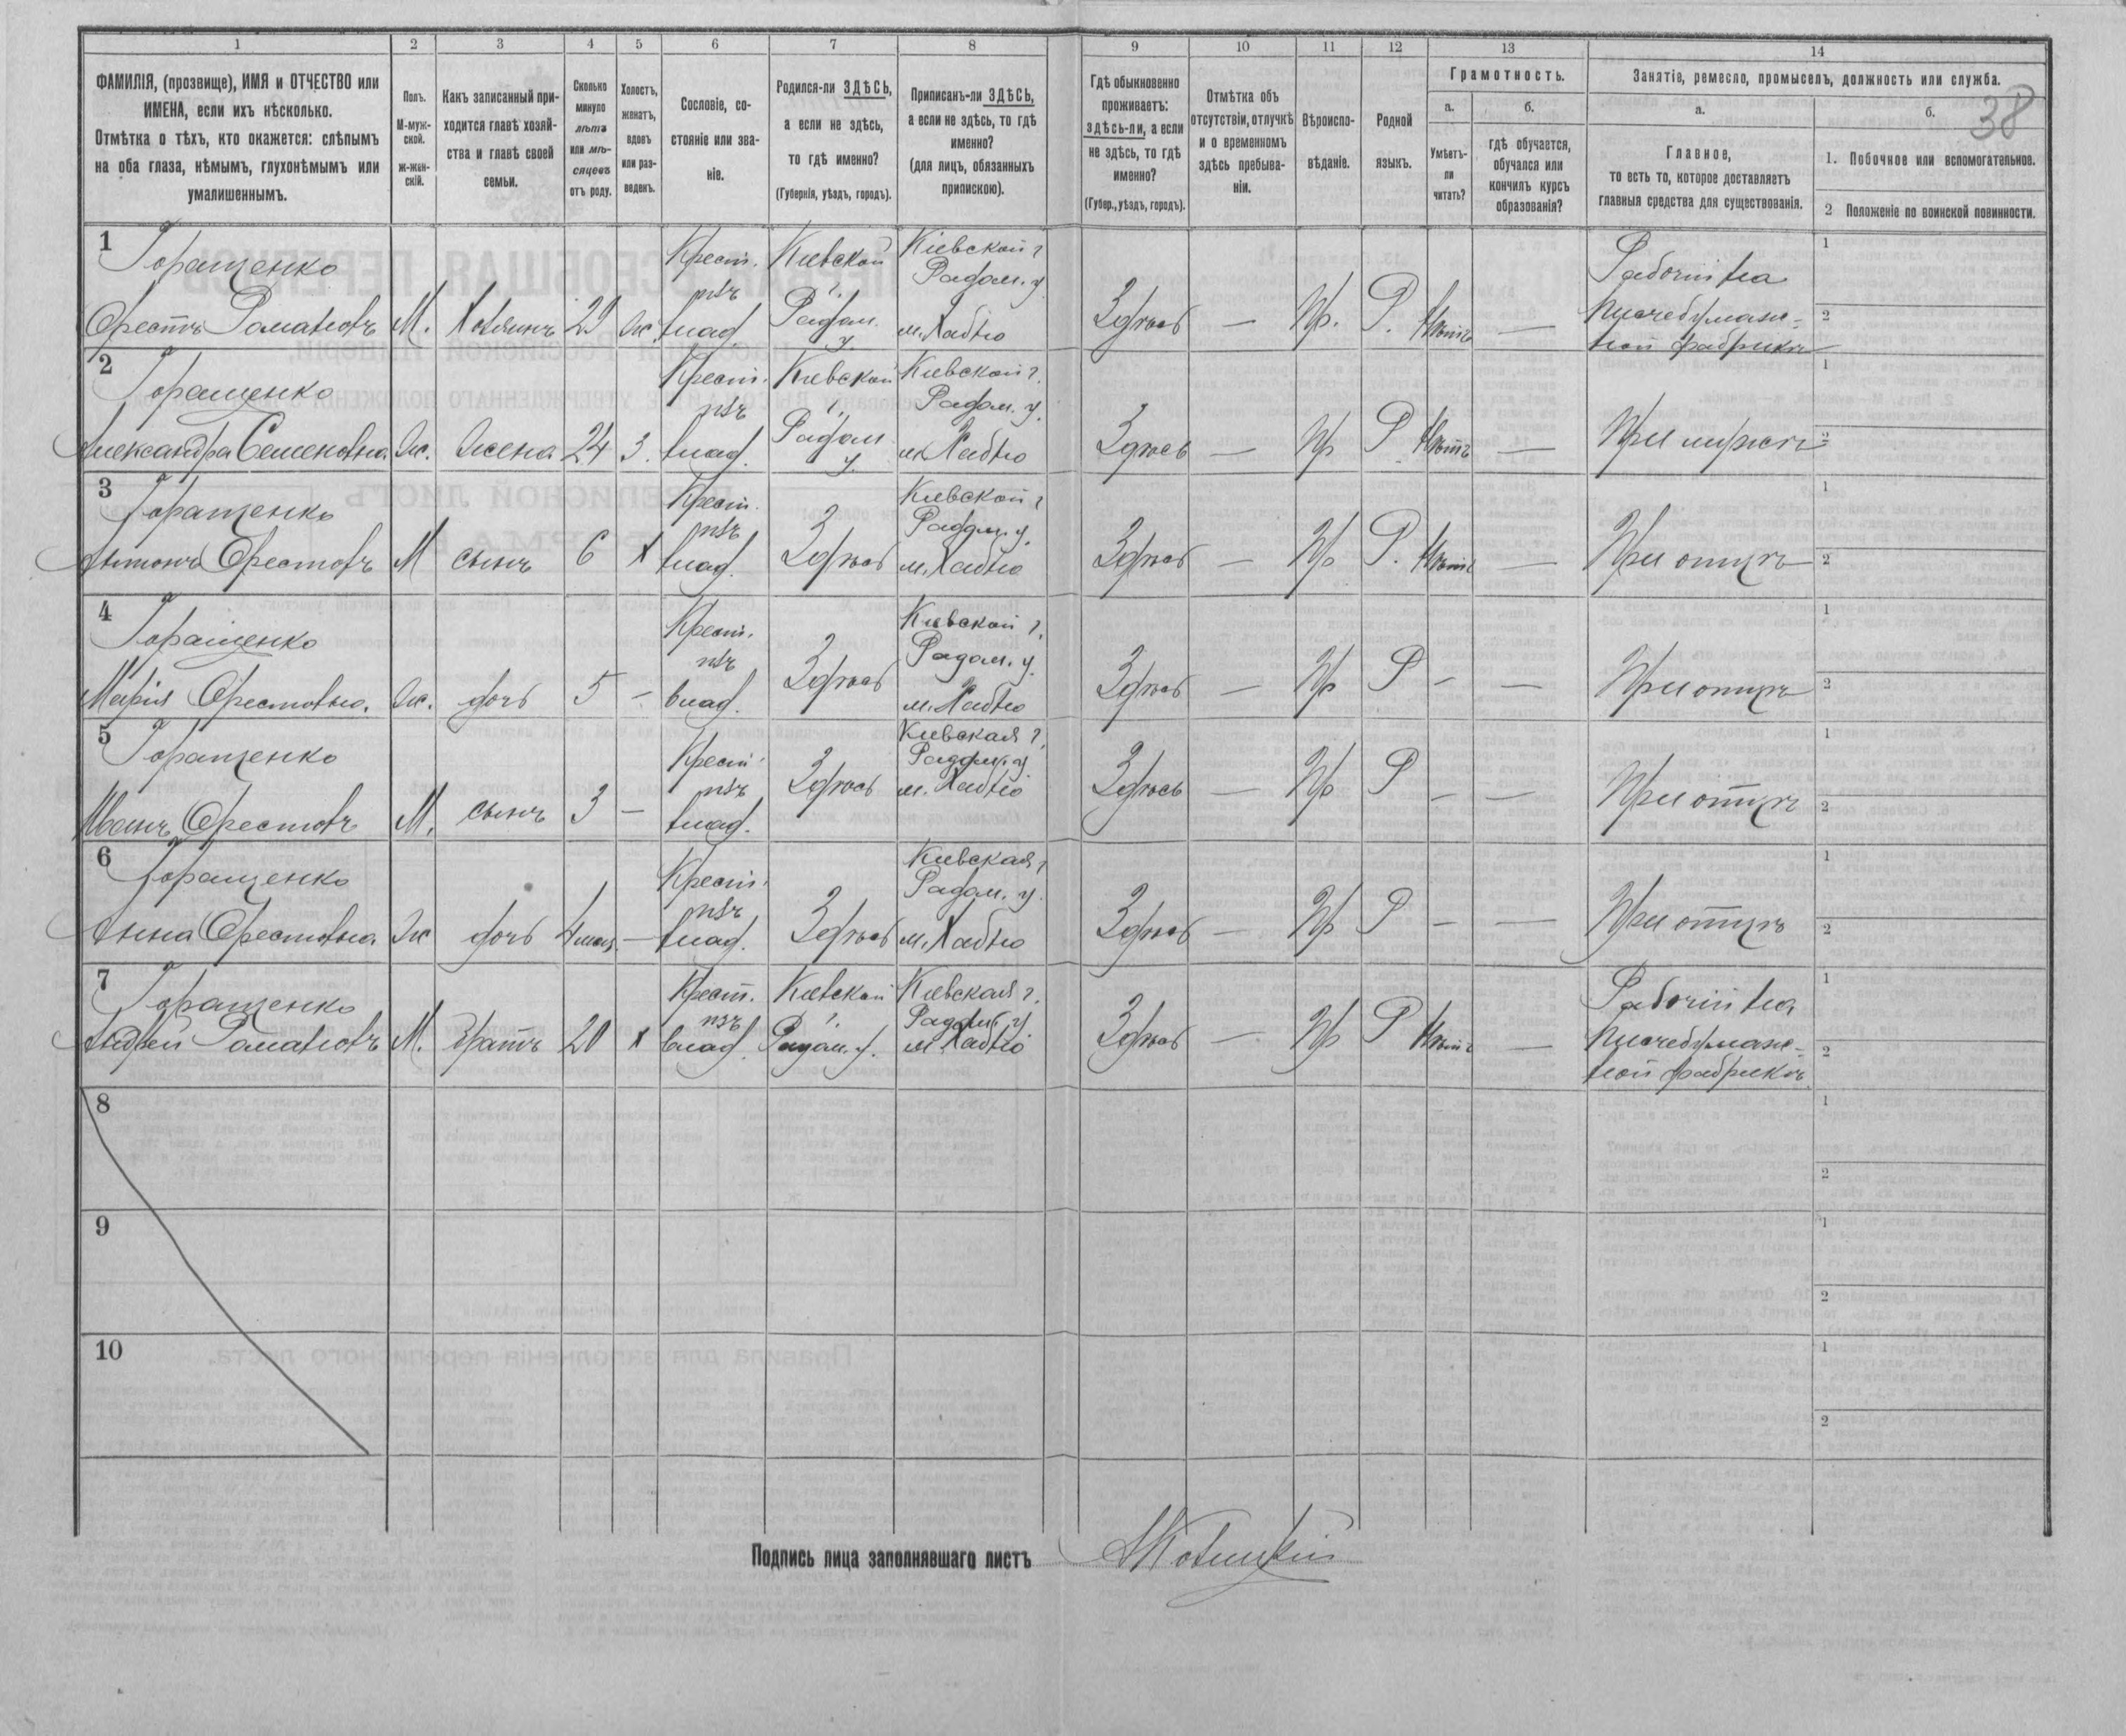 1 2 3 4 5 6 7 8 9 10 11 12 13 14
38
ФАМИЛІЯ, (прозвище), ИМЯ и ОТЧЕСТВО или
ИМЕНА, если ихъ нѣсколько.
Отмѣтка о тѣхъ, кто окажется: слѣпымъ
на оба глаза, нѣмымъ, глухонѣмымъ или
умалишеннымъ.
Полъ.
М-муж-
ской.
ж-жен-
скій.
Какъ записанный при-
ходится главѣ хозяй-
ства и главѣ своей
семьи.
Сколько
минуло
лѣтъ
или мѣ-
сяцевъ
отъ роду.
Холостъ,
женатъ,
вдовъ
или раз-
веденъ.
Сословіе, со-
стояніе или зва-
ніе.
Родился-ли ЗДѢСЬ,
а если не здѣсь,
то гдѣ именно?
(Губернія, уѣздъ, городъ).
Приписанъ-ли ЗДѢСЬ,
а если не здѣсь, то гдѣ
именно?
(для лицъ, обязанныхъ
припискою).
Гдѣ обыкновенно
проживаетъ:
здѣсь-ли, а если
не здѣсь, то гдѣ
именно?
(Губер., уѣздъ, городъ).
Отмѣтка объ
отсутствіи, отлучкѣ
и о временномъ
здѣсь пребыва-
ніи.
Вѣроиспо-
вѣданіе.
Родной
языкъ.
Грамотность.
а.
Умѣетъ-
ли
читать?
б.
гдѣ обучается,
обучался или
кончилъ курсъ
образованія?
Занятіе, ремесло, промыселъ, должность или служба.
а.
Главное,
то есть то, которое доставляетъ
главныя средства для существованія.
б.
1. Побочное или вспомогательное.
2 Положеніе по воинской повинности.
1
Горащенко
Орестъ Романовъ
М.
Хозяинъ
29
Ж.
Крест.
изъ
влад.
Кіевской
г.
Радом.
у.
Кіевской г.
Радом. у.
м. Хабно
Здѣсь
—
Пр.
Р.
Нѣтъ
—
Рабочій на
писчебумаж-
ной фабрикѣ
1
2
2
Горащенко
Александра Семеновна
Ж.
Жена
24
З.
Крест.
изъ
влад.
Кіевской
г.
Радом.
у.
Кіевской г.
Радом. у.
м. Хабно
Здѣсь
—
Пр
Р
Нѣтъ
—
При мужѣ
1
2
3
Горащенко
Антонъ Орестовъ
М
сынъ
6
Х
Крест.
изъ
влад.
Здѣсь
Кіевской г.
Радом. у.
м. Хабно
Здѣсь
—
Пр
Р.
Нѣтъ
—
При отцѣ
1
2
4
Горащенко
Марія Орестовна.
Ж.
дочь
5
—
Крест.
изъ
влад.
Здѣсь
Кіевской г.
Радом. у.
м. Хабно
Здѣсь
—
Пр
Р
—
—
При отцѣ
1
2
5
Горащенко
Иванъ Орестовъ
М.
сынъ
3
—
Крест.
изъ
влад.
Здѣсь
Кіевская г.
Радом. у.
м. Хабно
Здѣсь
—
Пр
Р
—
—
При отцѣ
1
2
6
Горащенко
Анна Орестовна
Ж
дочь
4 мѣс.
—
Крест.
изъ
влад.
Здѣсь
Кіевская г.
Радом. у.
м. Хабно
Здѣсь
—
Пр
Р
—
—
При отцѣ
1
2
7
Горащенко
Андрей Романовъ
М.
Братъ
20
х
Крест.
изъ
влад.
Кіевской
г.
Радом. у.
Кіевская г.
Радом. у.
м. Хабно
Здѣсь
—
Пр
Р
Нѣтъ
—
Рабочій на
писчебумаж-
ной фабрикѣ
1
2
8
1
2
9
1
2
10
1
2
Подпись лица заполнявшаго листъ